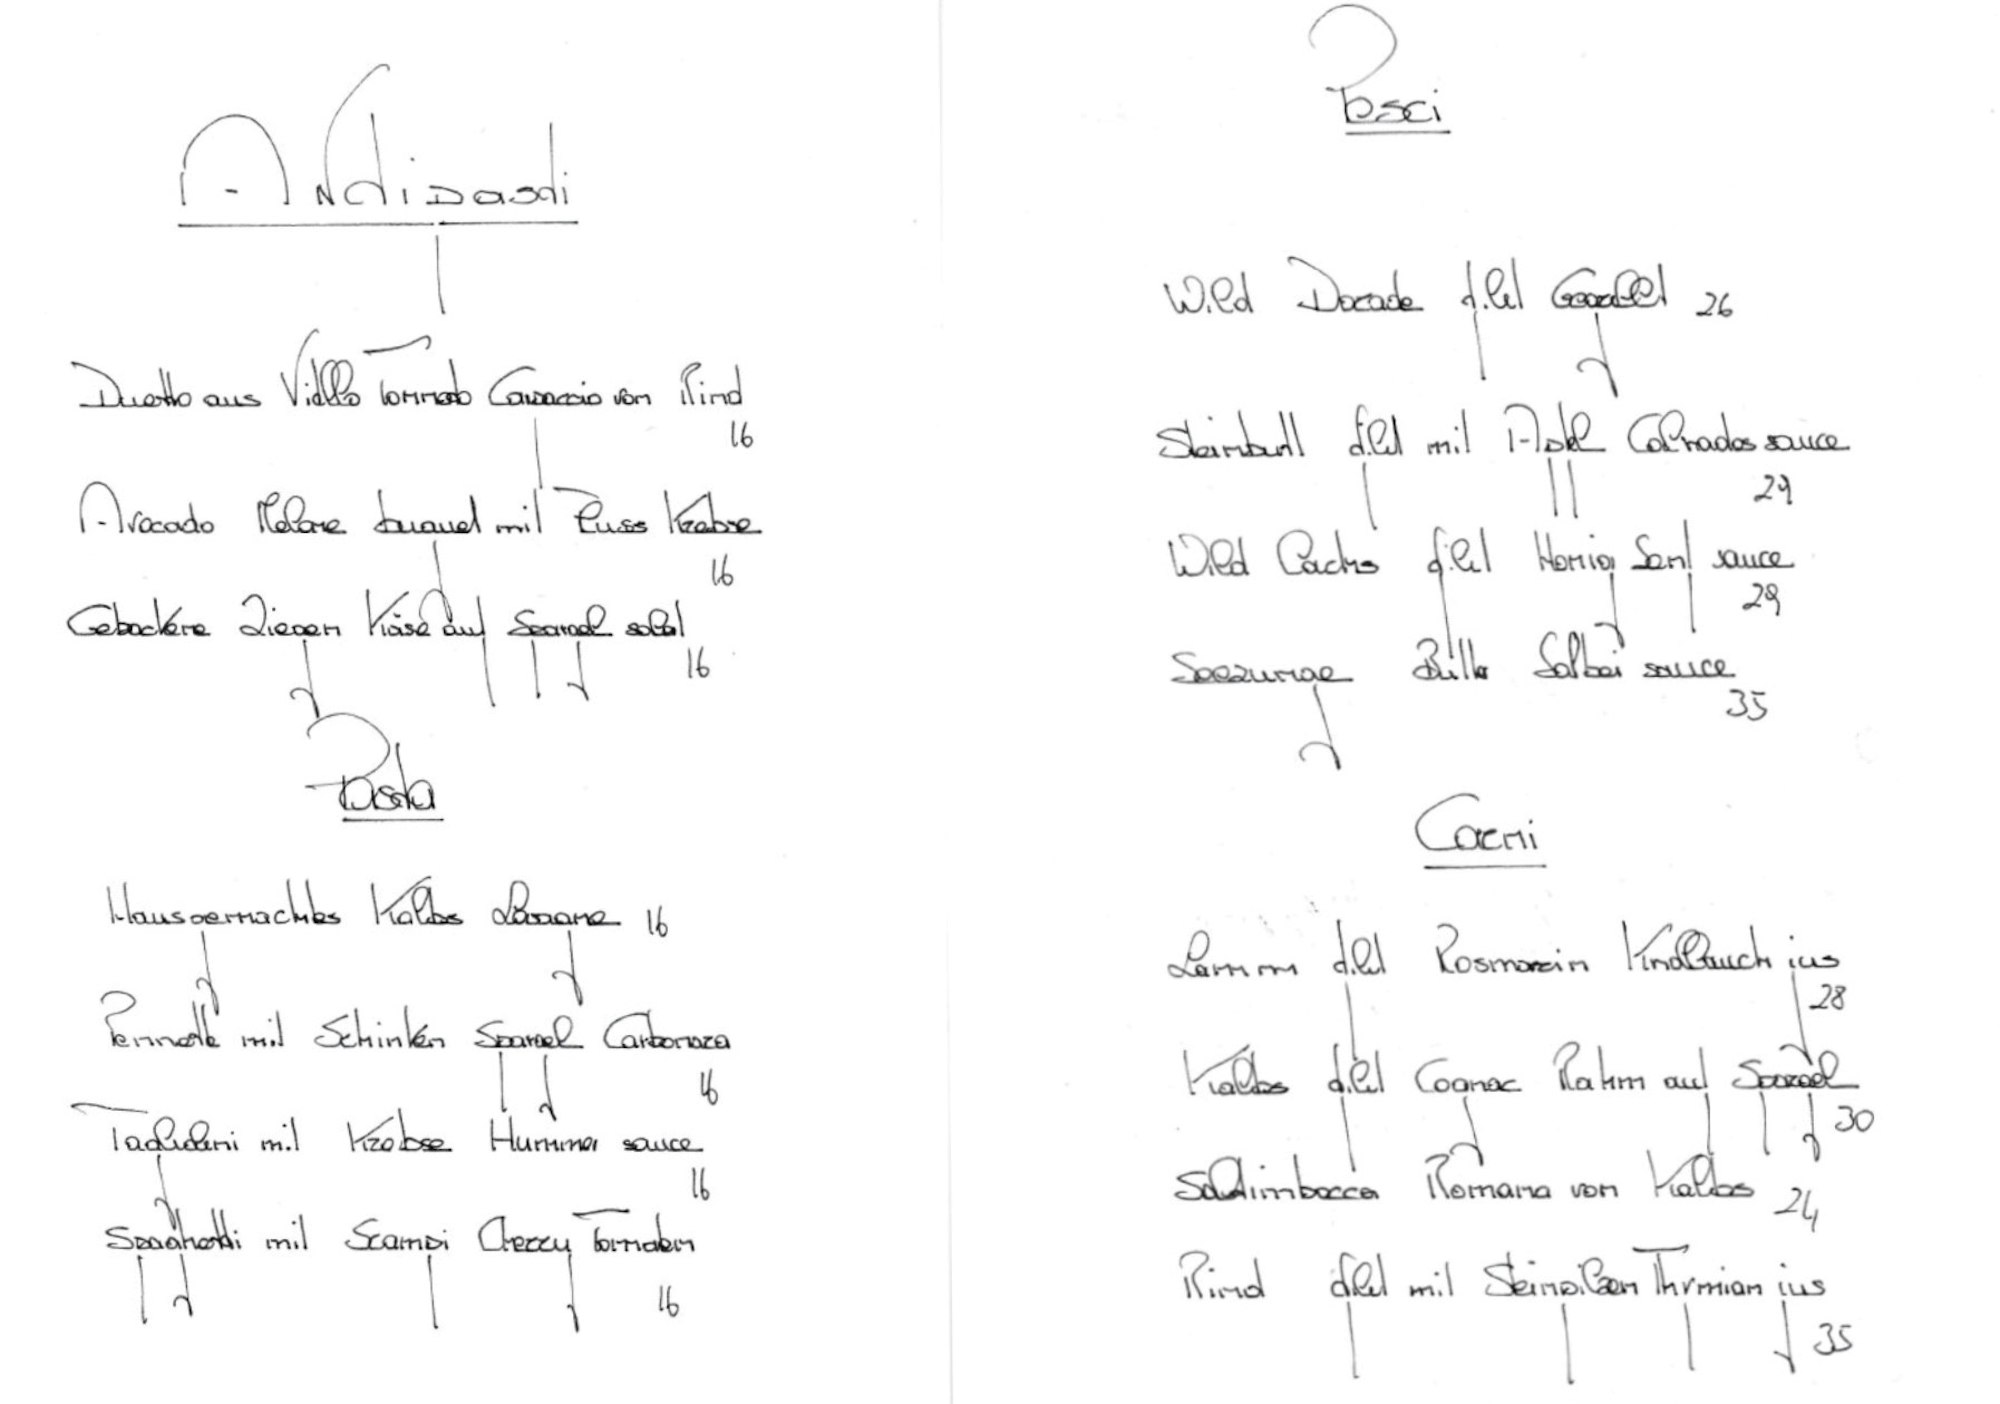 Antipasti
Duetto aus Vitello Tonnato Carpaccio von Rind
16
Avocado Melone mit Fluss Krebse
16
Gebackene Ziegen Käse auf Spargel salat
16
Pasta
Hausgemachtes Kalbs Lasagne 16
Pennette mit Schinken Spargel Carbonara
16
Taglidini mit Krebse Hummer sauce
16
Spaghetti mit Scampi Cherry Tomaten
16
Pesci
Wild Dorade filet Gegrillt 26
Steinbutt filet mit Apfel Calvados sauce
29
Wild Lachs filet Honig Senf sauce
29
Seezunge Butter Salbei sauce
35
Carni
Lamm filet Rosmarin Knoblauch jus
28
Kalbs filet Cognac Rahm auf Spargel
30
Saltimbocca Romana von Kalbs 24
Rind filet mit Steinpilzen Thymian jus
35